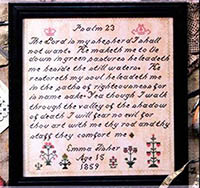 Psalm 23
The Lord is my shepherd I shall
not want. He maketh me to lie
down in green pastures he leadeth
me beside the still waters. He
restoreth my soul he leadeth me
in the paths of righteousness for
his name sake Yea though I walk
through the valley of the shadow
of death I will fear no evil for
thou art with me thy rod and thy
staff they comfort me
Emma Fisher
Age 15
1859